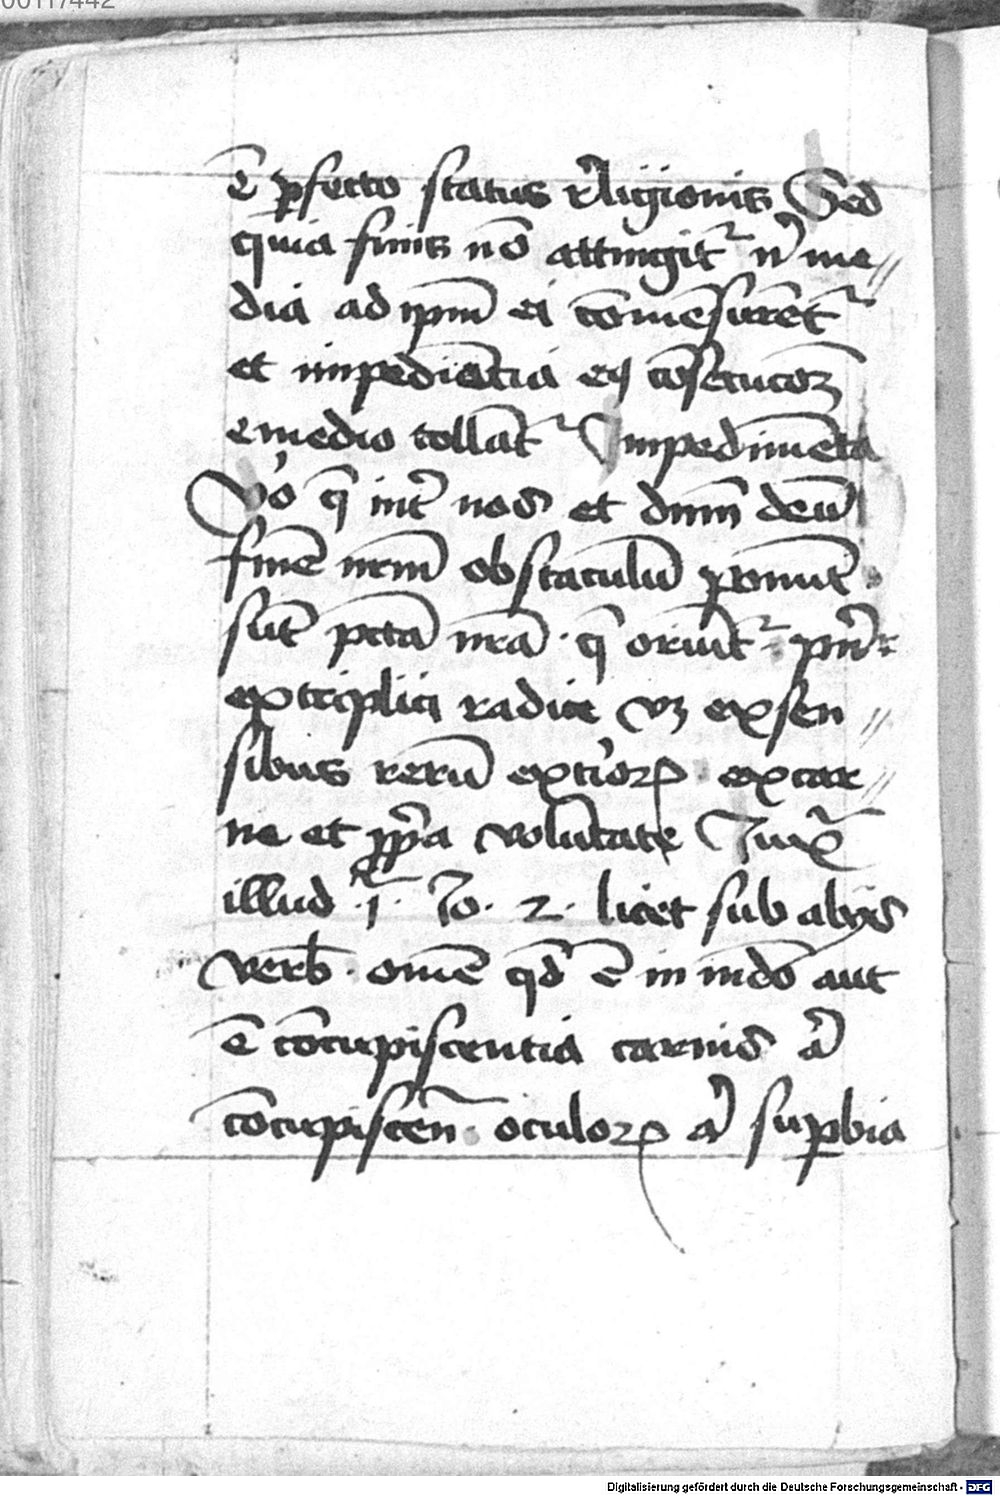 00117442
ē ꝑfectio status r̾ligionis Sed
quia finis nō attingit᷑ n̾ me⸗
dia ad ipm̄ ei cōmēsurēt᷑
et impediētia eiꝰ cōsecucōꝫ
e medio tollāt᷑ Impedimēta
v̾o q̄ int̾ nos et dnm̄ deū
finē nrm̄ obstaculū ponūt
sūt pctā nrā · q̄ oriūt᷑
ex triplici radice vꝫ ex sen⸗
sibus rerū ext̾ioꝝ · ex car⸗
ne et ꝓp̾a volūtate Iuxᵃ
illud · 1ᵃ · Io · 2 · licet sub alijs
verb̄ · om̄e qd̾ ē in mūdo aut
ē cōcupiscentia carnis aᵗ
cōcupiscen̄ · oculoꝝ aᵗ suꝑbia
Digitalisierung gefördert durch die Deutsche Forschungsgemeinschaft - DFG